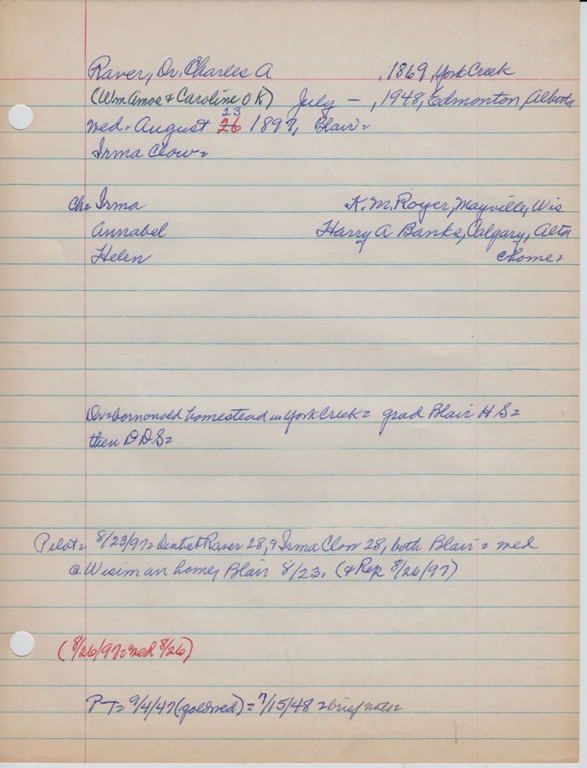 Raver, Dr. Charles A , 1869, York Creek
(Wm Amos & Caroline OK) July — , 1948, Edmonton, Alberta
med = August 26 23 1897, Blair =
Irma Clow =
Ch = Irma K. M. Royer, Mayville, Wis
Annabel Harry A Banks, Calgary, Alta
Helen @home =
Dr = born on old homestead in York Creek = grad Blair HS =
then DDS =
Pilot = 8/23/97 = Dentist Raver 28, & Irma Clow 28, both Blair = med
@ Wisiman home, Blair 8/23. (& Rep 8/26/97)
(8/26/97 = med 8/26)
P-T = 9/4/47 (gold wed) = 7/15/48 = brief note =